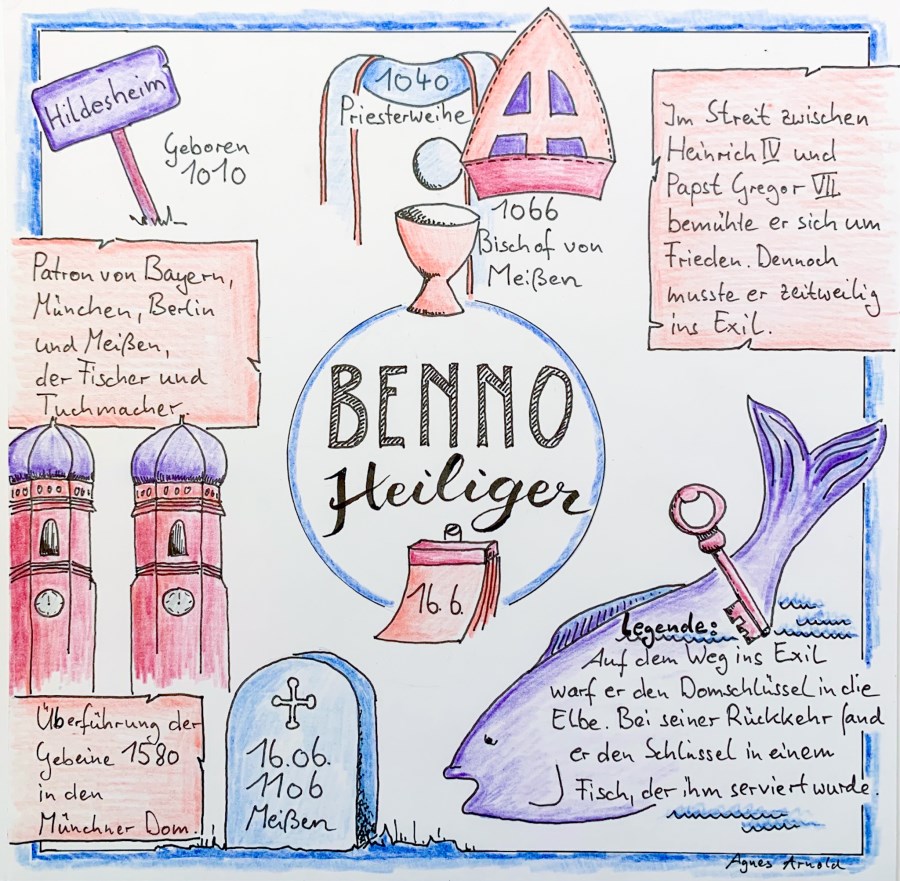 Hildesheim
Geboren
1010
1040
Priesterweihe
1066
Bischof von
Meißen
Im Streit zwischen
Heinrich IV und
Papst Gregor VII
bemühte er sich um
Frieden. Dennoch
musste er zeitweilig
ins Exil.
Patron von Bayern,
München, Berlin
und Meißen,
der Fischer und
Tuchmacher.
BENNO
Heiliger
16.6.
Legende:
Auf dem Weg ins Exil
warf er den Domschlüssel in die
Elbe. Bei seiner Rückkehr fand
er den Schlüssel in einem
Fisch, der ihm serviert wurde.
Überführung der
Gebeine 1580
in den
Münchner Dom.
16.06.
1106
Meißen
Agnes Arnold